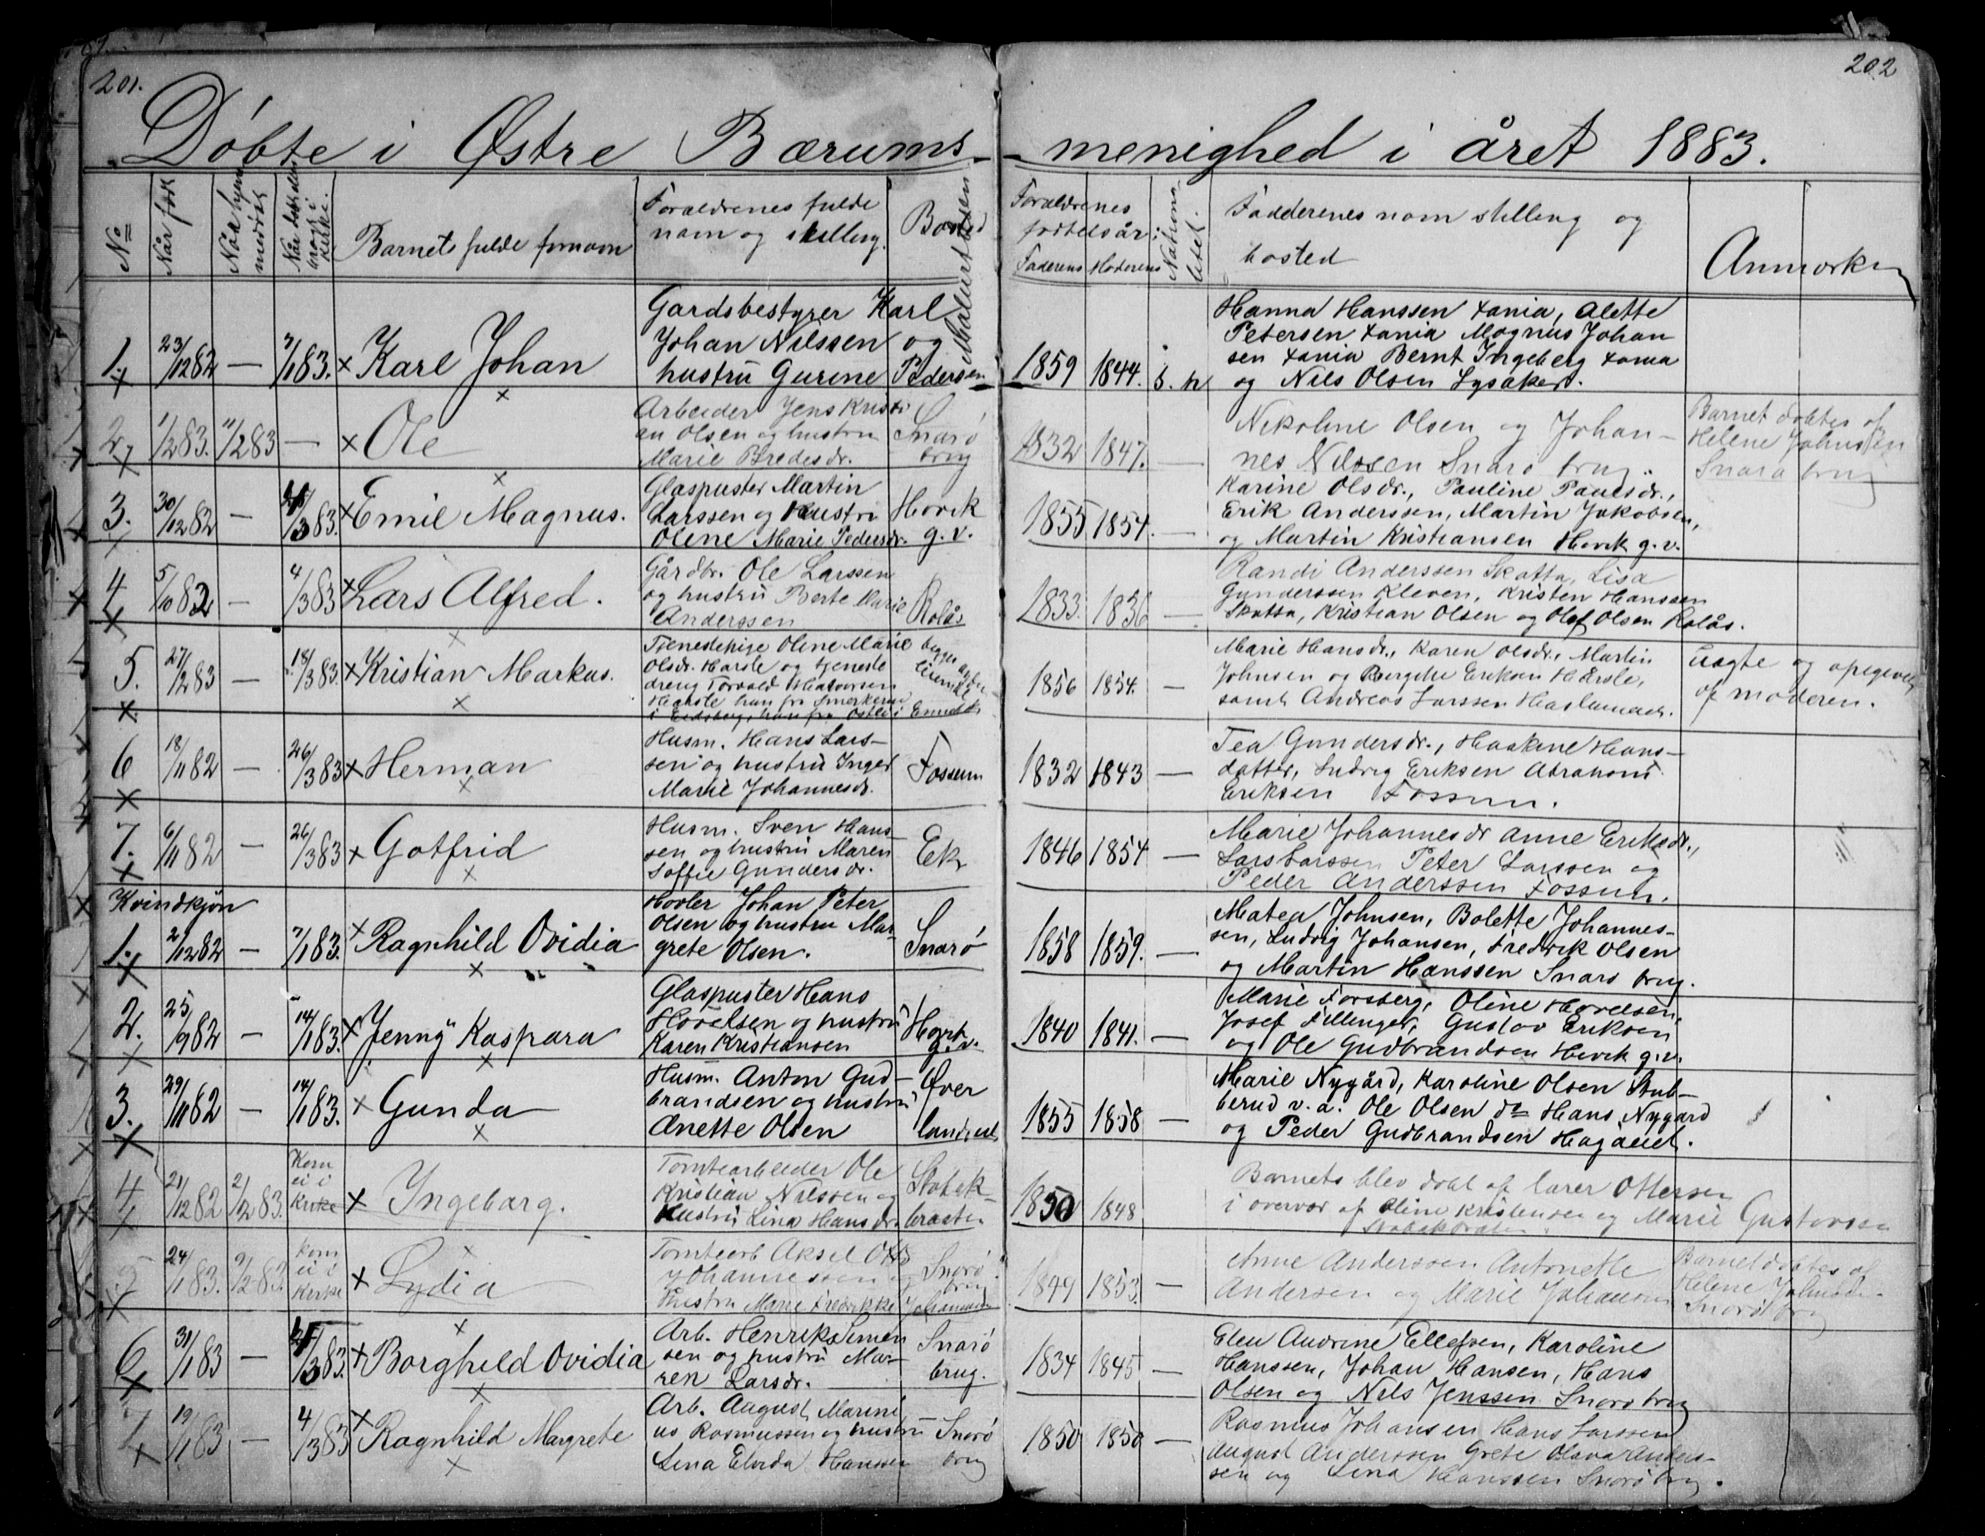 201.
202
Døbte i Østre Bærums menighed i året 1883.
No
Når født
Når hjemmedøbt
Når i kirke
Barnets fulde fornavn
Forældrenes fulde
navn og stilling.
Bosted
Forældrenes
fødselsår:
Faderens Moderens
Fadderenes navn stilling og
bosted
Anmærkn
1. 23/12 82 — 7/1 83. Karl Johan
Gardsbestyrer Karl
Johan Nilssen og
hustru Gurine Pedersen
1859 1844.
Hanna Hanssen Xania, Alette
Petersen Xania Magnus Johan
sen Xania Bernt Ingeberg Xania
og Nils Olsen Lysaker.
2. 1/2 83. 11/2 83 — Ole
Arbeider Jens Kristi
an Olsen og hustru
Marie Bredesdr.
Snarø
brug
1832 1847. —
Nikoline Olsen og Johan-
nes Nilssen Snarø brug.
Barnet døbtes af
Helene Johnsen
Snarø brug
3. 30/12 82 — 4/3 83. Emil Magnus.
Glaspuster Martin
Larssen og Hustru
Olene Marie Pedersdr.
Høvik
g.v.
1855 1854. —
Karine Olsdr., Pauline Paulsdr.,
Erik Anderssen, Martin Jakobsen,
og Martin Kristiansen Høvik g.v.
4 5/10 82 — 4/3 83 Lars Alfred.
Gårdbr. Ole Larssen
og hustru Berte Marie
Anderssen
Rolås
1833. 1836 —
Randi Anderssen Skotta, Lisa
Gunderssen Kleven, Kristen Hanssen
Skotta, Kristian Olsen og Olef Olsen Rolås.
5. 27/2 83 — 18/3 83. Kristian Markus.
Tjenestepige Oline Marie
Olsdr. Harsle og tjeneste
dreng Torvald
1856 1854. —
Marie Hansdr., Karen Olsdr., Martin
Johnsen og Bergithe Eriksen Harsle,
samt Andreas Larssen
Uægte og opgivelse
af moderen.
6 18/11 82 — 26/3 83 Herman
Husm. Hans Lars-
sen og hustru Inger
Marie Johannesdr.
Fossum
1832 1843 —
Tea Gundersdr., Haskine Hans-
datter, Ludvig Eriksen Abraham
Eriksen Fossum.
7. 6/11 82 — 26/3 83 Gotfrid
Husm. Sven Hans-
sen og hustru Maren
Soffie Gundersdr.
Ek
1846 1854 —
Marie Johannesdr Anne Eriksdr.,
Lars Larssen Peter Larssen og
Peder Anderssen Fossum.
Kvindkjøn
1. 2/12 82 — 7/1 83. Ragnhild Ovidia
Høvler Johan Peter
Olsen og hustru Mar-
grete Olsen.
Snarø
1858 1859. —
Matea Johnsen, Bolette Johannes-
sen, Ludvig Johansen, Fredrik Olsen
og Martin Hanssen Snarø brug.
2. 25/9 82 — 14/1 83. Jenny Kaspara
Glaspuster Hans
Hovelsen og hustru
Karen Kristiansen
Høvik
g.v.
1840 1841. —
Marie Forsberg, Oline Hovelsen,
Josef Fillinger, Gustav Eriksen
og Ole Gudbrandsen Høvik g.v.
3. 29/11 82 — 14/1 83. Gunda
Husm. Anton Gud-
brandsen og hustru
Anette Olsen
Øver
1855 1858 —
Marie Nygård, Karoline Olsen Stub-
berud v.a. Ole Olsen do Hans Nygård
og Peder Gudbrandsen
4 21/12 82 2/2 83. Kom
ei i
Kirke
Ingeborg.
Tomtearbeider Ole
Kristian Nilssen og
Hustru Lina Hansdr.
Stabæk-
bråten
1850 1848
Barnets blev døbt af lærer Ottersen
i overvær af Oline Kristensen og Marie Gustavsen
5 24/1 83. 9/2 83. Kom
ei i
Kirke
Lydia
Tomtearb Aksel Otto
Johannessen og
Hustru Marie Fredrikke Johansen
Snarø
brug
1849 1853. —
Anne Anderssen Antonette
Andersen og Marie Johansen
Barnet døbtes af
Helene Johnsen
Snarø brug
6 31/1 83 — 4/3 83. Borghild Ovidia
Arb. Henrik Simen
sen og hustru Ma-
ren Larsdr.
Snarø
brug.
1834 1845 —
Elen Andrine Ellefsen, Karoline
Hanssen, Johan Hansen, Hans
Olsen og Nils Jenssen Snarø brug
7 19/1 83 — 4/3 83 Ragnhild Margrete
Arb. August Marini
us Rasmussen og hustru
Lina Elvida Hanssen
Snarø
brug
1850 1850 —
Rasmus Johansen Hans Larssen
August Anderssen Grete Olava Anders-
sen og Lina Hanssen Snarø brug.